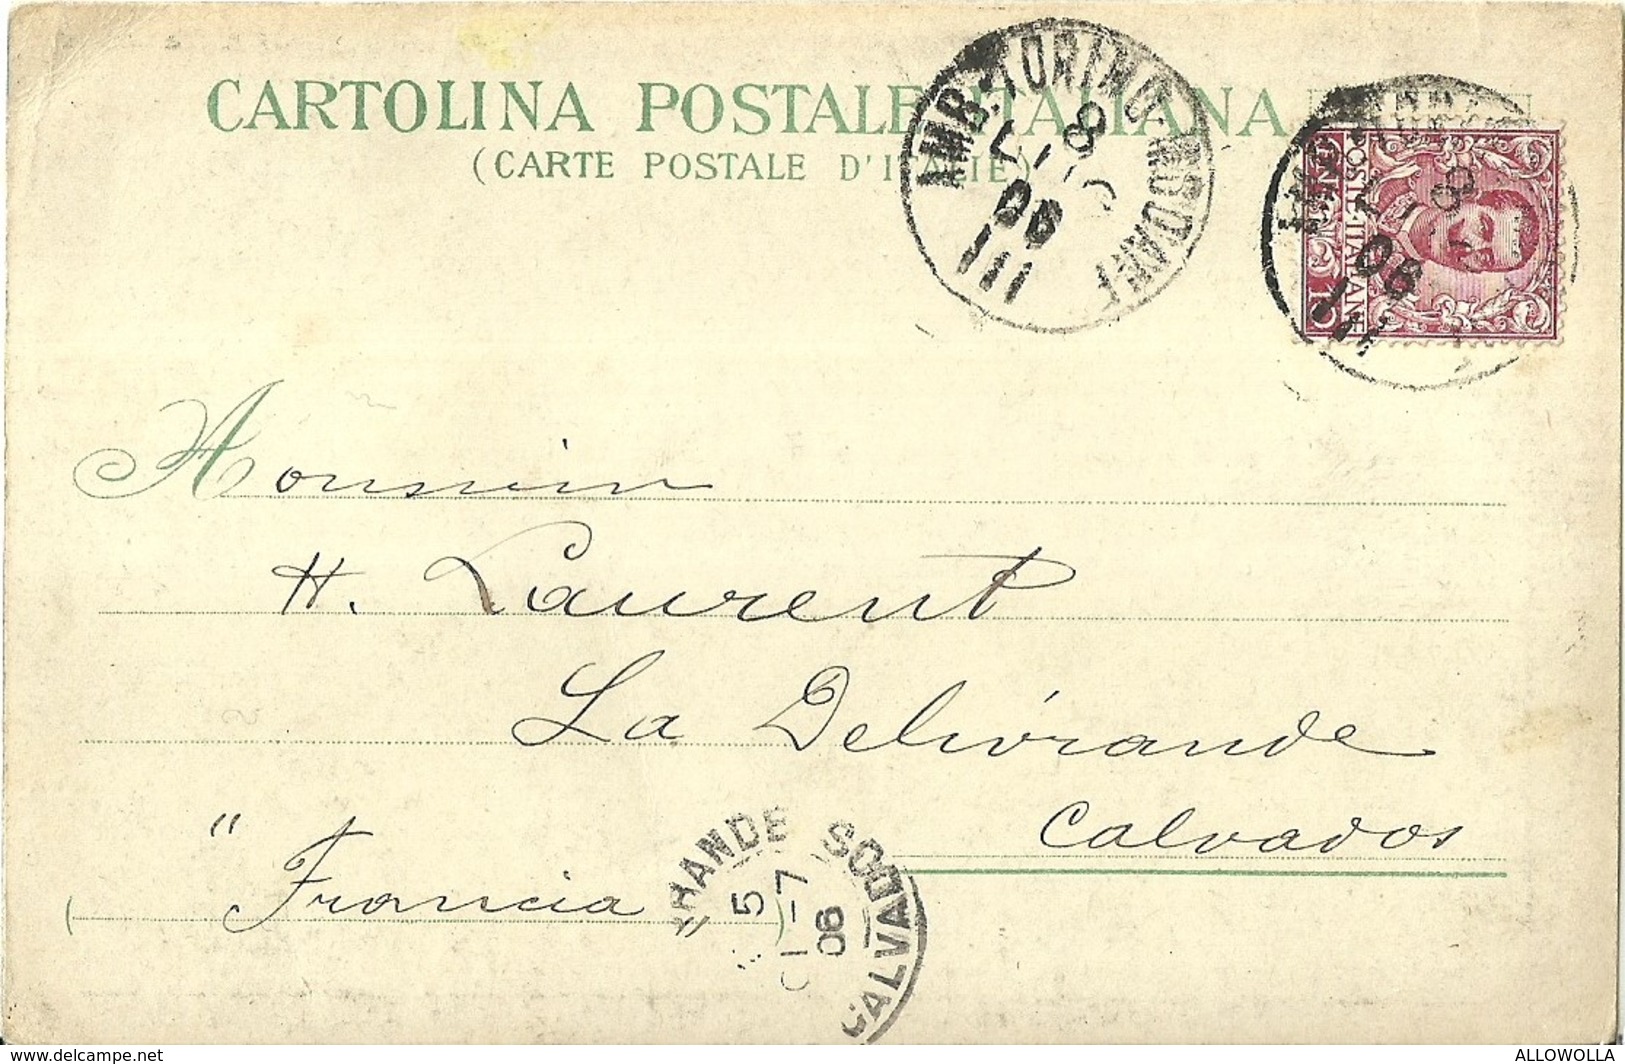 CARTOLINA POSTALE ITALIANA
(CARTE POSTALE D'ITALIE)
AMB. TORINO-MODANE
8
06
III
POSTE ITALIANE
CENT. 10
Monsieur
H. Laurent
La Délivrande
Calvados
" Francia
5
-7
06
CALVADOS
www.delcampe.net
ALLOWOLLA